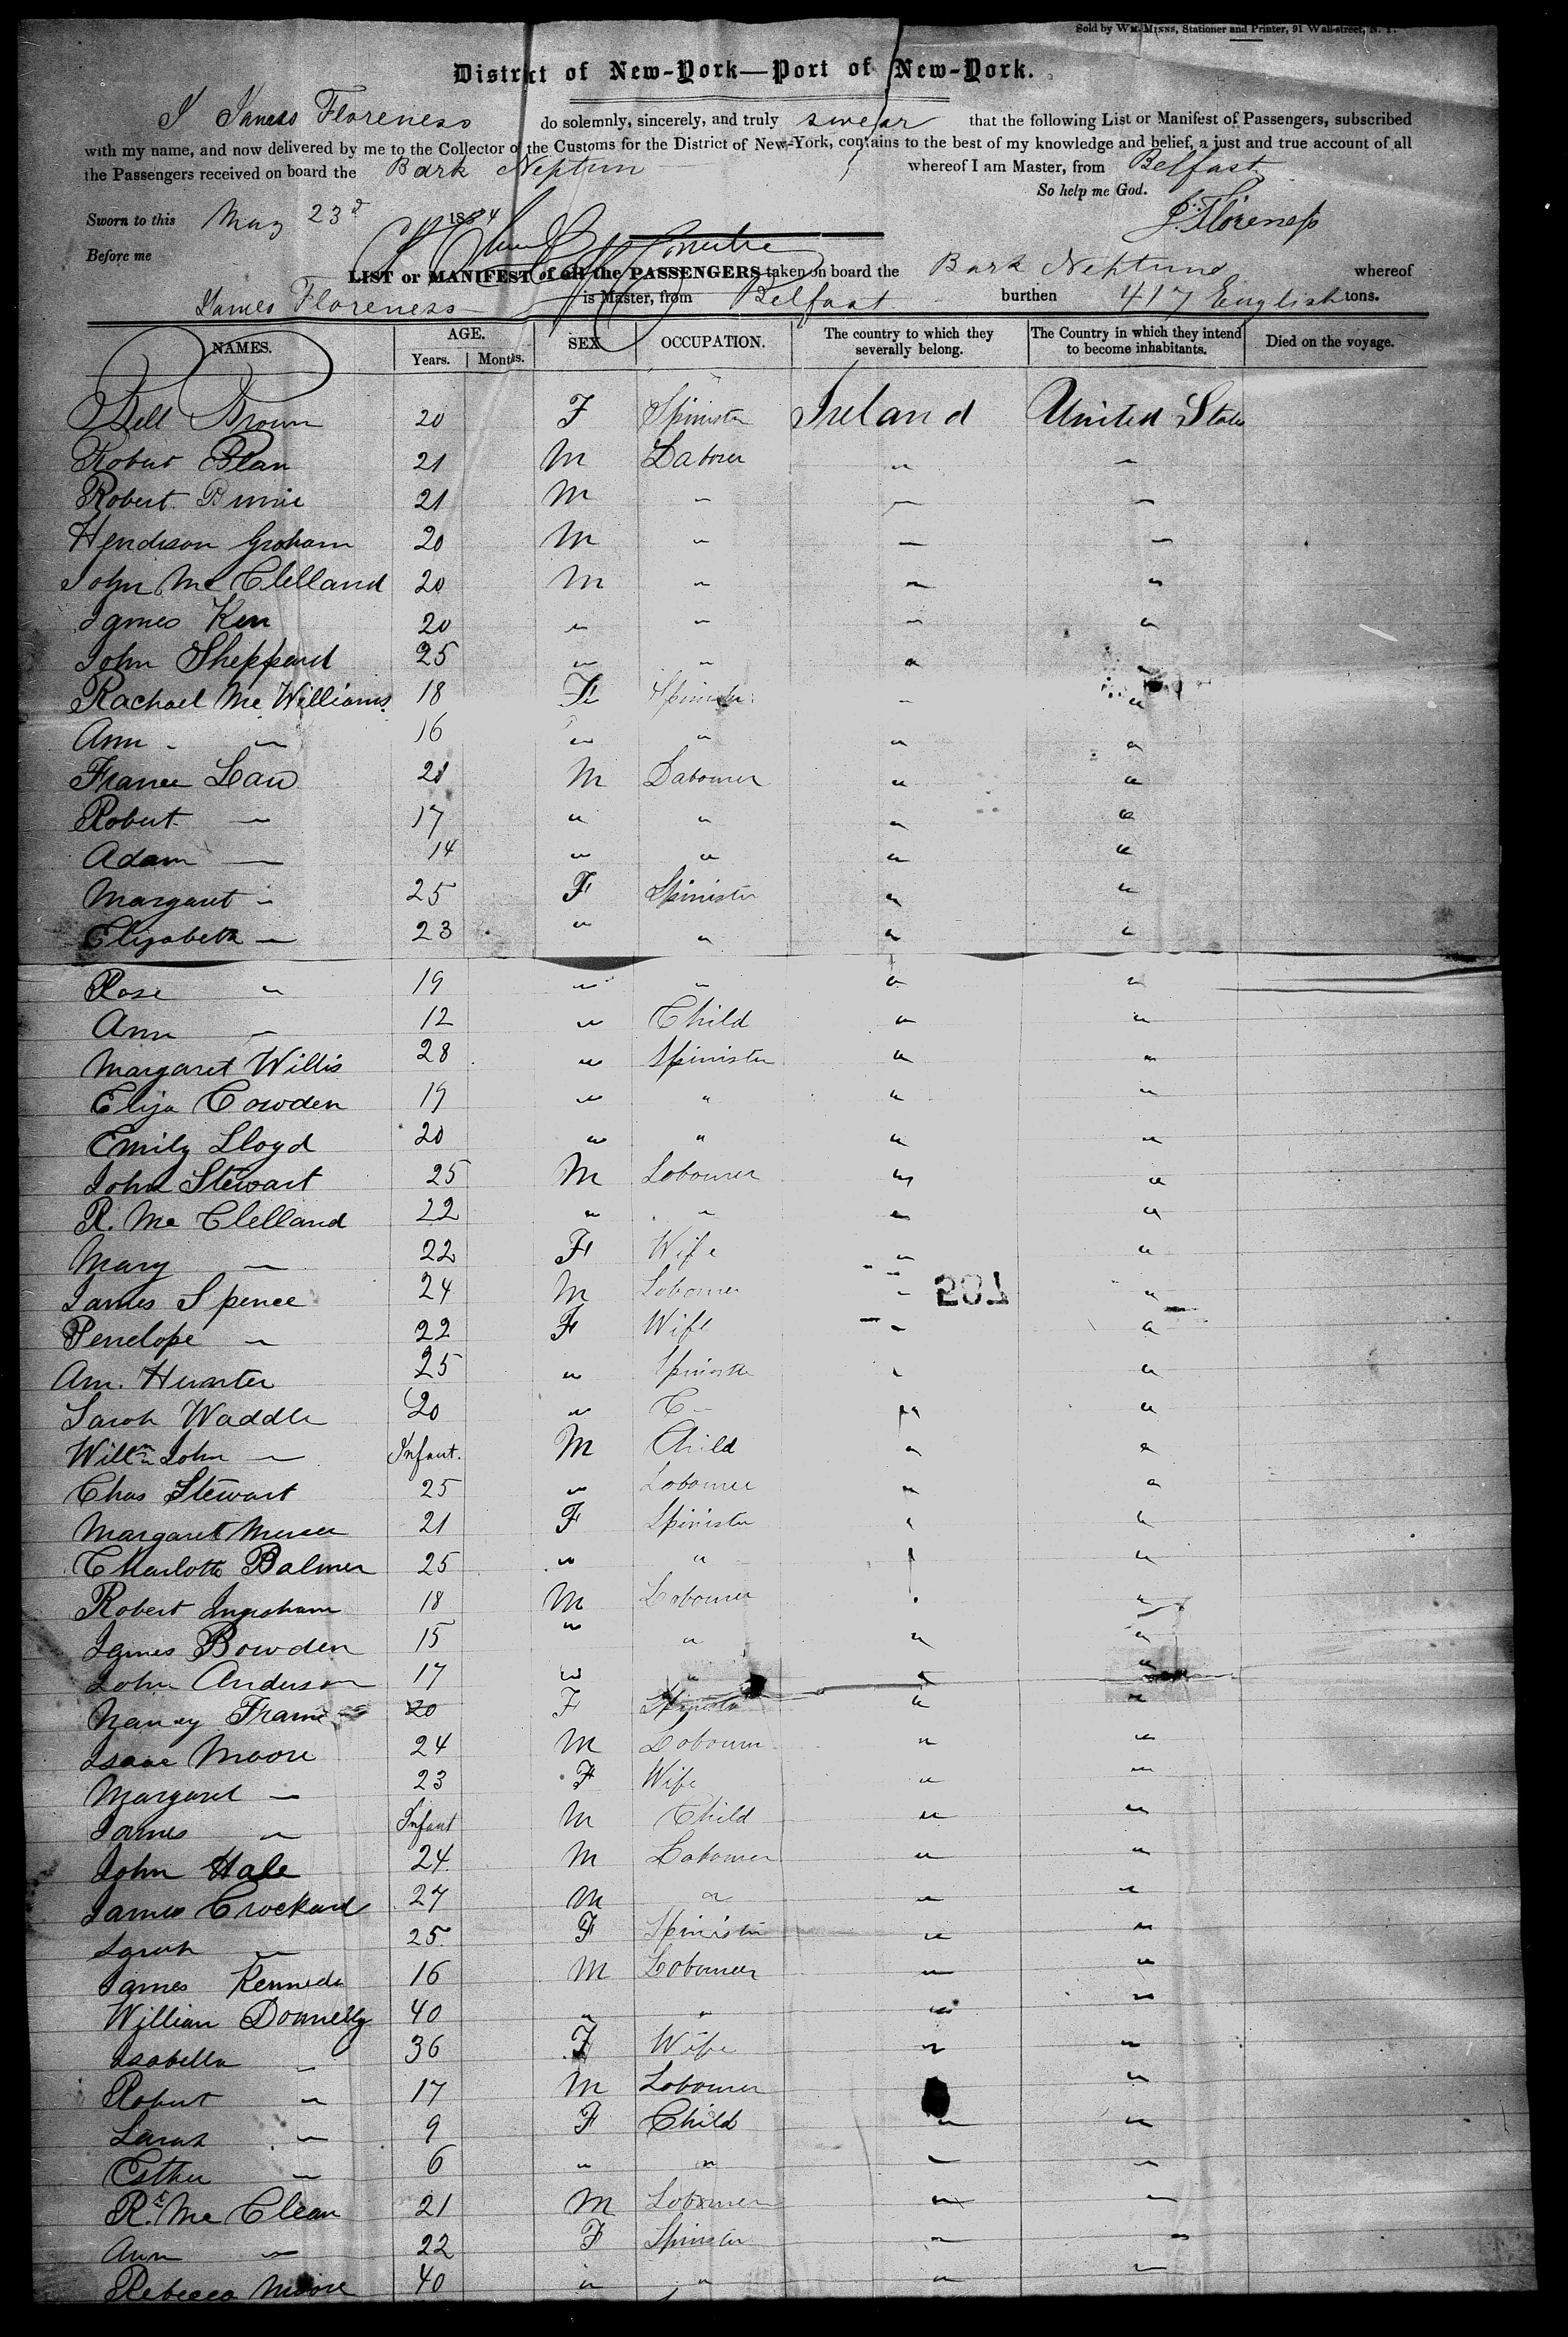 Sold by Wm. Minns, Stationer and Printer, 91 Wall-street, N. Y.
District of New-York—Port of New-York.
I James Floreness do solemnly, sincerely, and truly swear that the following List or Manifest of Passengers, subscribed
with my name, and now delivered by me to the Collector of the Customs for the District of New-York, contains to the best of my knowledge and belief, a just and true account of all
the Passengers received on board the Bark Neptun whereof I am Master, from Belfast
So help me God.
Sworn to this May 23d 1854 J. Floreness
Before me
LIST or MANIFEST of all the PASSENGERS taken on board the Bark Neptune whereof
James Floreness is Master, from Belfast burthen 417 English tons.
NAMES. AGE. Years. Months. SEX OCCUPATION. The country to which they severally belong. The Country in which they intend to become inhabitants. Died on the voyage.
Bell Brown 20 F Spinister Ireland United States
Robert 21 M Laborer " "
Robert 21 M " " "
Hendrson Graham 20 M " " "
John Mc Clelland 20 M " " "
James Kerr 20 " " " "
John Sheppard 25 " " " "
Rachael Mc Williams 18 F Spinister " "
Ann " 16 " " " "
France Law 21 M Labourer " "
Robert " 17 " " " "
Adam " 14 " " " "
Margaret " 25 F Spinister " "
Elizabeth " 23 " " " "
Rose " 19 " " " "
Ann " 12 " Child " "
Margaret Willis 28 " Spinister " "
Eliza Cowden 19 " " " "
Emily Lloyd 20 " " " "
John Stewart 25 M Labourer " "
R. Mc Clelland 22 " " " "
Mary " 22 F Wife " "
James Spence 24 M Labourer " "
Penelope " 22 F Wife " "
Ann Hunter 25 " Spinister " "
Sarah Waddle 20 " " "
Willm John " Infant. M Child " "
Chas Stewart 25 " Labourer " "
Margaret Mercer 21 F Spinister " "
Charlotte Balmer 25 " " " "
Robert Ingraham 18 M Labourer " "
James Bowden 15 " " " "
John Anderson 17 " " " "
Nancy Frame 20 F Spinister " "
Isaac Moore 24 M Labourer " "
Margaret " 23 F Wife " "
James " Infant M Child " "
John Hale 24 M Labourer " "
James Crockard 27 M " " "
Sarah " 25 F Spinister " "
James Kennedy 16 M Labourer " "
William Donnelly 40 " " " "
Isabella " 36 F Wife " "
Robert " 17 M Labourer "
Sarah " 9 F Child " "
Esther " 6 " " " "
Rt. Mc Clean 21 M Labourer " "
Ann " 22 F Spinster " "
Rebecca Moore 40 " " " "